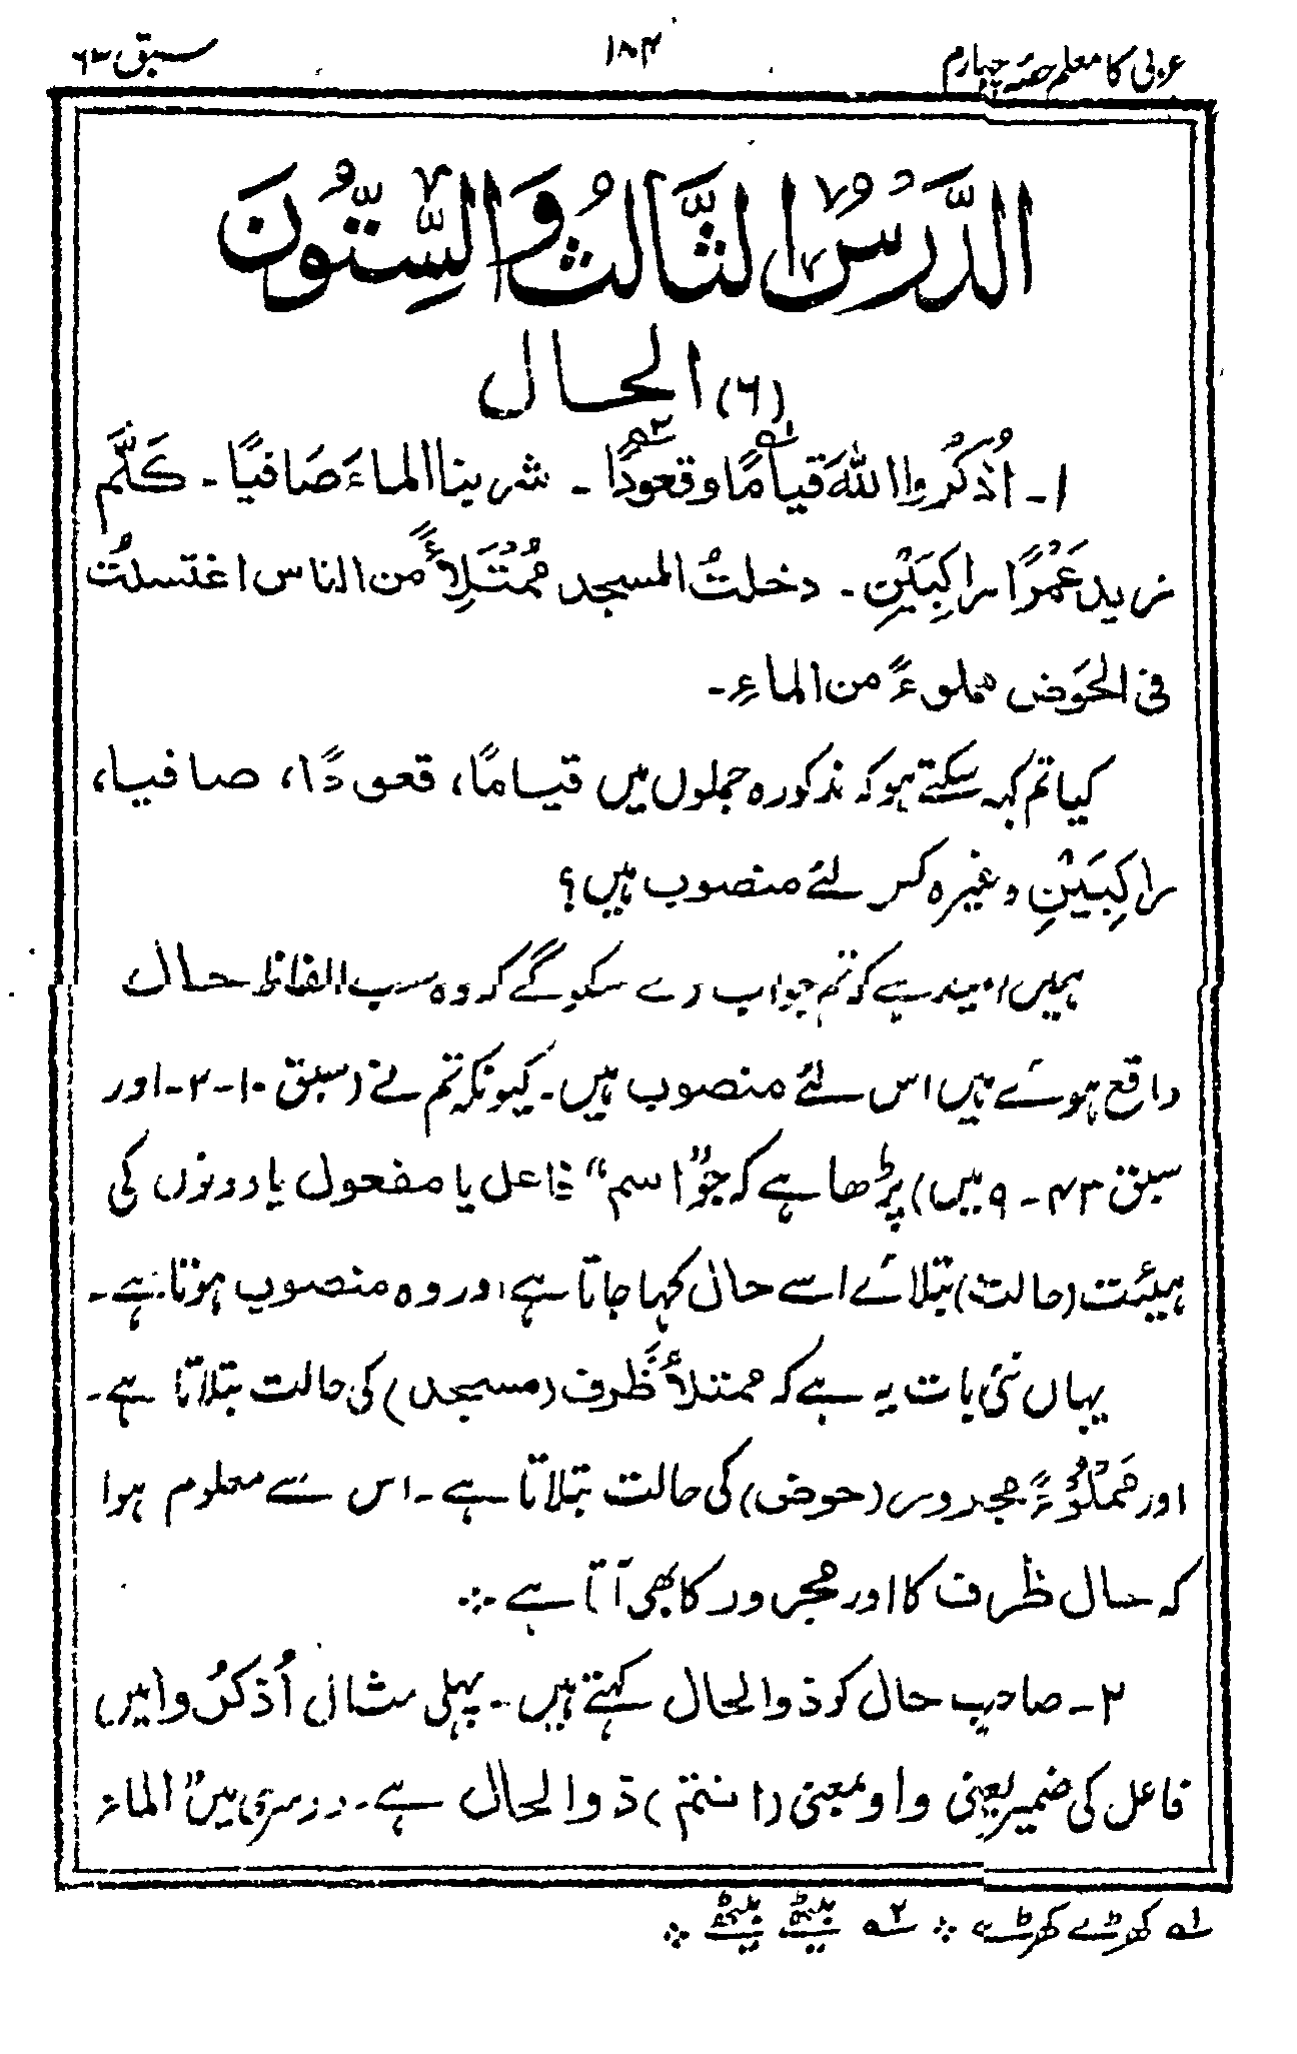 عربی کا معلم حصہ چہارم ۱۸۴ سبق ۶۳
الدَّرْسُ الثَّالِثُ وَالسِّتُّونَ
(۶) الحال
۱۔ اُذْكُرُوا اللهَ قيامًا۱؎ وقعودًا۲؎ ۔ شربنا الماءَ صَافيًا ۔ كَلَّمَ
زيد عَمْرًا راكِبَيْنِ ۔ دخلتُ المسجد مُمْتَلِأً من الناس اغتسلتُ
فى الحَوض مملوءً من الماءِ ۔
کیا تم کہہ سکتے ہو کہ مذکورہ جملوں میں قیامًا، قعودًا، صافیا،
راكِبَيْنِ وغیرہ کس لئے منصوب ہیں؟
ہمیں امید ہے کہ تم جواب دے سکو گے کہ وہ سب الفاظ حال
واقع ہوئے ہیں اس لئے منصوب ہیں۔ کیونکہ تم نے (سبق ۱۰-۲-اور
سبق ۴۳ - ۹ میں) پڑھا ہے کہ جو "اسم" فاعل یا مفعول یا دونوں کی
ہیئت (حالت) بتلائے اسے حال کہا جاتا ہے اور وہ منصوب ہوتا ہے۔
یہاں نئی بات یہ ہے کہ ممتلأً ظَرف (مسجد) کی حالت بتلاتا ہے۔
اور مَمْلُوْءً مجرور (حوض) کی حالت بتلاتا ہے۔ اس سے معلوم ہوا
کہ حال ظرف کا اور مجرور کا بھی آتا ہے ∻
۲۔ صاحبِ حال کو ذوالحال کہتے ہیں۔ پہلی مثال اُذكُروا میں
فاعل کی ضمیر یعنی واو بمعنی (انتم) ذوالحال ہے۔ دوسری میں الماء
۱؎ کھڑے کھڑے ∻ ۲؎ بیٹھے بیٹھے ∻